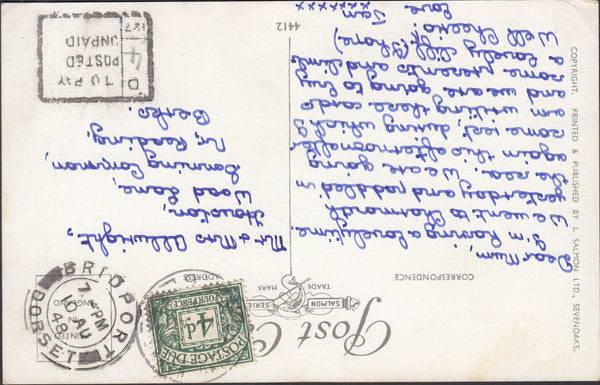 Post Card
SALMON SERIES
TRADE MARK
CORRESPONDENCE
ADDRESS
PRINTED
IN
ENGLAND
POSTAGE DUE
4d
FOURPENCE
BRIDPORT
7 - PM
AU
48
DORSET
Dear Mum,
I'm having a lovely time.
We went to Charmouth
yesterday and paddled in
the sea. We are going
again this afternoon after
some rest, during which I
am writing these cards
and we are going to buy
some presents and climb
a lovely cliff (shore)
Well Cheerio.
Love
Sam
xxxxxx
Mr & Mrs Allwright,
Wood Lane,
Sonning Common,
Nr. Reading,
Berks.
TO PAY
POSTED
UNPAID
4
D
127
4412
COPYRIGHT. PRINTED & PUBLISHED BY J. SALMON LTD., SEVENOAKS.